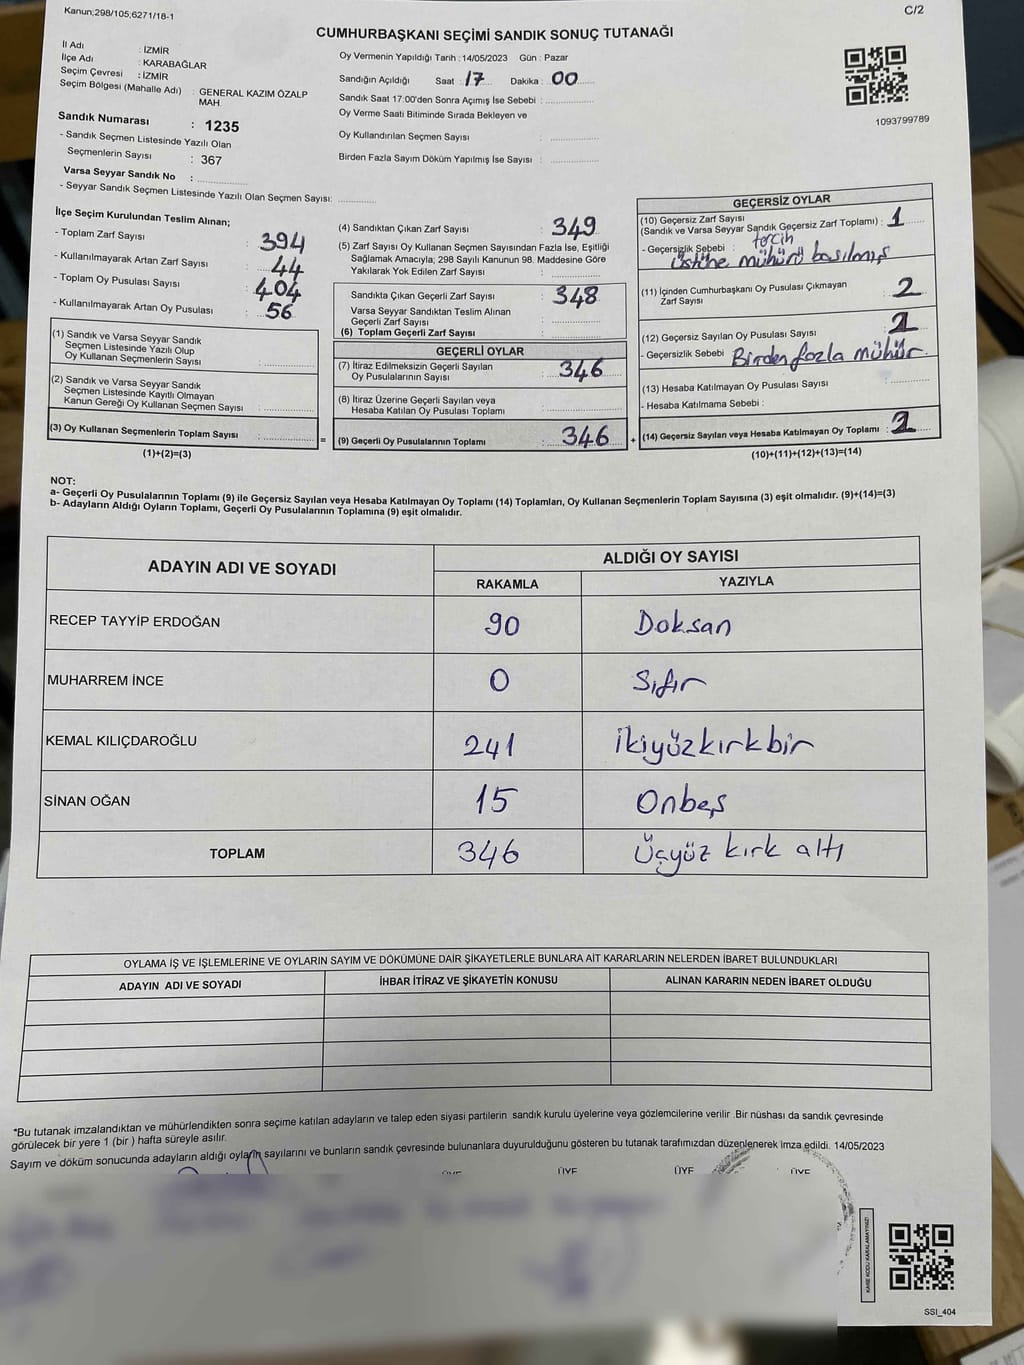 Kanun;298/105;6271/18-1
C/2
CUMHURBAŞKANI SEÇİMİ SANDIK SONUÇ TUTANAĞI
İl Adı : İZMİR
İlçe Adı : KARABAĞLAR
Seçim Çevresi : İZMİR
Seçim Bölgesi (Mahalle Adı) : GENERAL KAZIM ÖZALP MAH.
Sandık Numarası : 1235
- Sandık Seçmen Listesinde Yazılı Olan
Seçmenlerin Sayısı : 367
Varsa Seyyar Sandık No :
- Seyyar Sandık Seçmen Listesinde Yazılı Olan Seçmen Sayısı:
Oy Vermenin Yapıldığı Tarih : 14/05/2023 Gün : Pazar
Sandığın Açıldığı Saat : 17 Dakika : 00
Sandık Saat 17:00'den Sonra Açımış İse Sebebi :
Oy Verme Saati Bitiminde Sırada Bekleyen ve
Oy Kullandırılan Seçmen Sayısı :
Birden Fazla Sayım Döküm Yapılmış İse Sayısı :
1093799789
İlçe Seçim Kurulundan Teslim Alınan;
- Toplam Zarf Sayısı : 394
- Kullanılmayarak Artan Zarf Sayısı : 44
- Toplam Oy Pusulası Sayısı : 404
- Kullanılmayarak Artan Oy Pusulası : 56
(1) Sandık ve Varsa Seyyar Sandık
Seçmen Listesinde Yazılı Olup
Oy Kullanan Seçmenlerin Sayısı :
(2) Sandık ve Varsa Seyyar Sandık
Seçmen Listesinde Kayıtlı Olmayan
Kanun Gereği Oy Kullanan Seçmen Sayısı :
(3) Oy Kullanan Seçmenlerin Toplam Sayısı : =
(1)+(2)=(3)
(4) Sandıktan Çıkan Zarf Sayısı : 349
(5) Zarf Sayısı Oy Kullanan Seçmen Sayısından Fazla İse, Eşitliği
Sağlamak Amacıyla; 298 Sayılı Kanunun 98. Maddesine Göre
Yakılarak Yok Edilen Zarf Sayısı :
Sandıkta Çıkan Geçerli Zarf Sayısı : 348
Varsa Seyyar Sandıktan Teslim Alınan
Geçerli Zarf Sayısı :
(6) Toplam Geçerli Zarf Sayısı :
GEÇERLİ OYLAR
(7) İtiraz Edilmeksizin Geçerli Sayılan
Oy Pusulalarının Sayısı : 346
(8) İtiraz Üzerine Geçerli Sayılan veya
Hesaba Katılan Oy Pusulası Toplamı :
(9) Geçerli Oy Pusulalarının Toplamı : 346 +
GEÇERSİZ OYLAR
(10) Geçersiz Zarf Sayısı
(Sandık ve Varsa Seyyar Sandık Geçersiz Zarf Toplamı) : 1
- Geçersizlik Sebebi : tercih
üstüne mühürü basılmış
(11) İçinden Cumhurbaşkanı Oy Pusulası Çıkmayan
Zarf Sayısı : 2
(12) Geçersiz Sayılan Oy Pusulası Sayısı :
- Geçersizlik Sebebi : Birden fazla mühür.
(13) Hesaba Katılmayan Oy Pusulası Sayısı :
- Hesaba Katılmama Sebebi :
(14) Geçersiz Sayılan veya Hesaba Katılmayan Oy Toplamı :
(10)+(11)+(12)+(13)=(14)
NOT:
a- Geçerli Oy Pusulalarının Toplamı (9) ile Geçersiz Sayılan veya Hesaba Katılmayan Oy Toplamı (14) Toplamları, Oy Kullanan Seçmenlerin Toplam Sayısına (3) eşit olmalıdır. (9)+(14)=(3)
b- Adayların Aldığı Oyların Toplamı, Geçerli Oy Pusulalarının Toplamına (9) eşit olmalıdır.
ADAYIN ADI VE SOYADI
ALDIĞI OY SAYISI
RAKAMLA YAZIYLA
RECEP TAYYİP ERDOĞAN 90 Doksan
MUHARREM İNCE 0 Sıfır
KEMAL KILIÇDAROĞLU 241 ikiyüzkırkbir
SİNAN OĞAN 15 Onbeş
TOPLAM 346 Üçyüz kırk altı
OYLAMA İŞ VE İŞLEMLERİNE VE OYLARIN SAYIM VE DÖKÜMÜNE DAİR ŞİKAYETLERLE BUNLARA AİT KARARLARIN NELERDEN İBARET BULUNDUKLARI
ADAYIN ADI VE SOYADI İHBAR İTİRAZ VE ŞİKAYETİN KONUSU ALINAN KARARIN NEDEN İBARET OLDUĞU
*Bu tutanak imzalandıktan ve mühürlendikten sonra seçime katılan adayların ve talep eden siyasi partilerin sandık kurulu üyelerine veya gözlemcilerine verilir .Bir nüshası da sandık çevresinde
görülecek bir yere 1 (bir ) hafta süreyle asılır.
Sayım ve döküm sonucunda adayların aldığı oyların sayılarını ve bunların sandık çevresinde bulunanlara duyurulduğunu gösteren bu tutanak tarafımızdan düzenlenerek imza edildi. 14/05/2023
ÜYE ÜYE ÜYE ÜYE
KARE KODU KARALAMAYINIZ!
SSI_404